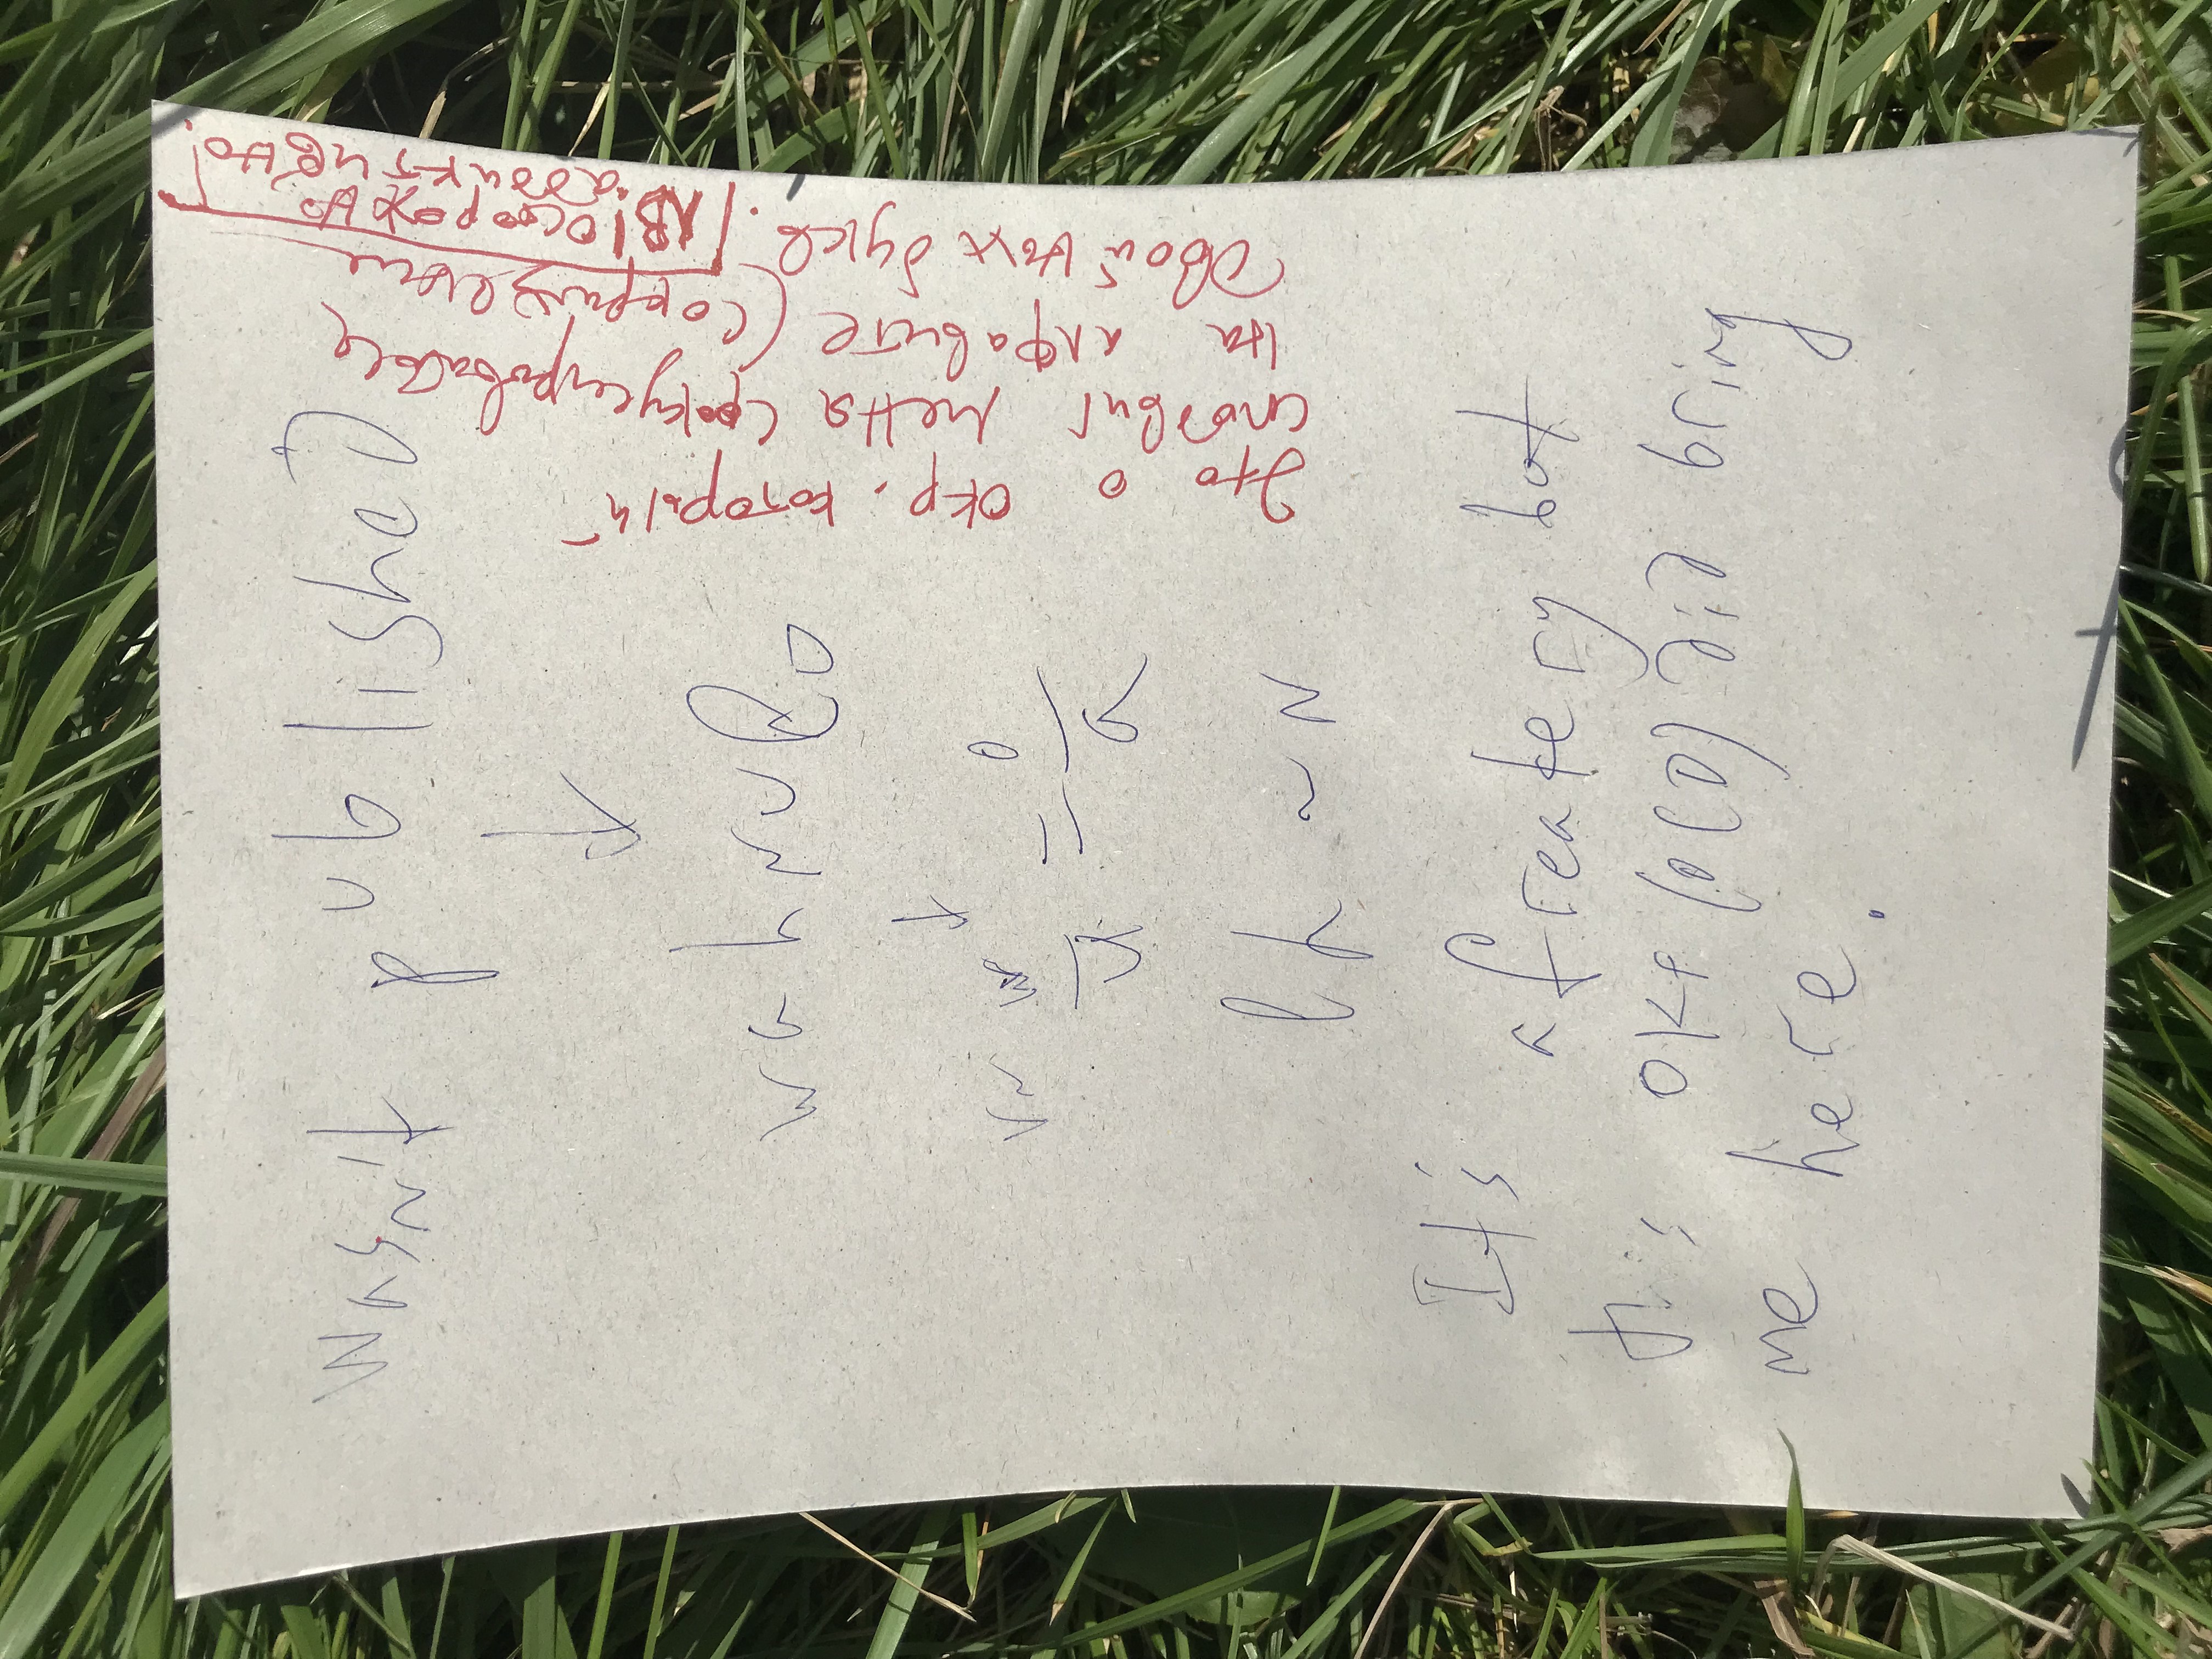 wasn't published
wahnupo
w = o
a
lh ~ N
It's a freakery but
this окр (OCD) did bring
me here.
Это о ОКР, который
спобвиг меня сфокусироваться
на алфавите (сокращение
двойных букв.
NB! Осторожно:
аддиктивно!